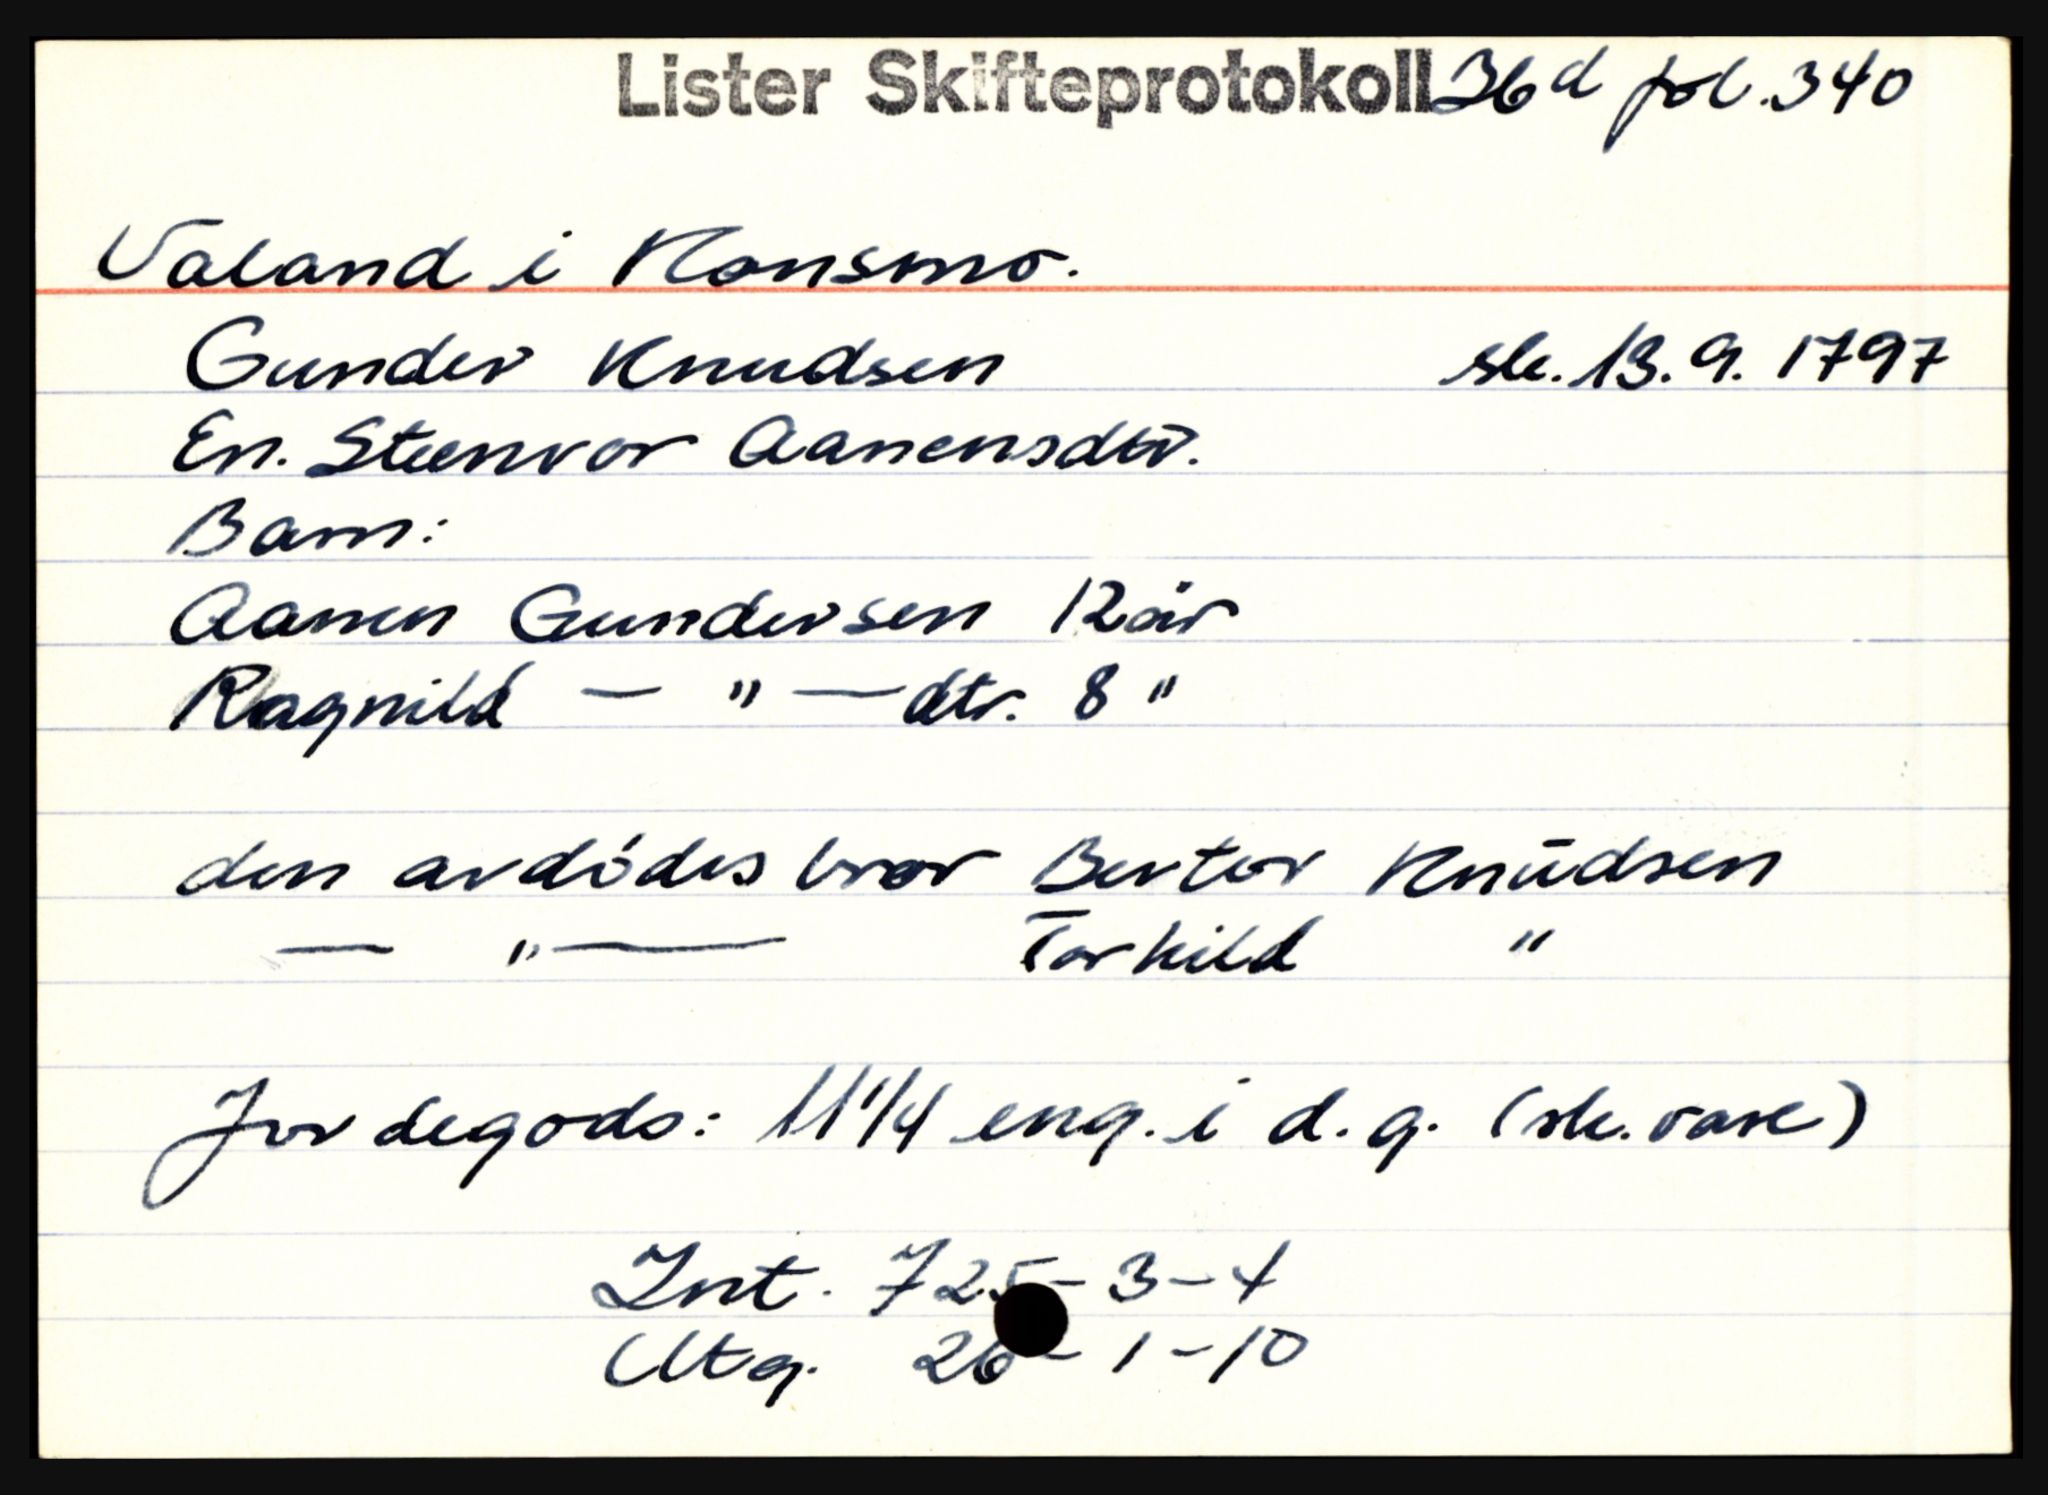 Lister Skifteprotokoll 36d fol. 340
Valand i Konsmo.
Gunder Knudsen sk. 13.9.1797
En. Steenvor Aanensdtr.
Barn:
Aanen Gundersen 12 år
Ragnild — " — dtr. 8 "
den avdødes bror Bertor Knudsen
— " — Torkild "
Jordegods: 11 1/4 eng. i d. g. (sk. vare)
Int. 725-3-4
Utg. 26-1-10